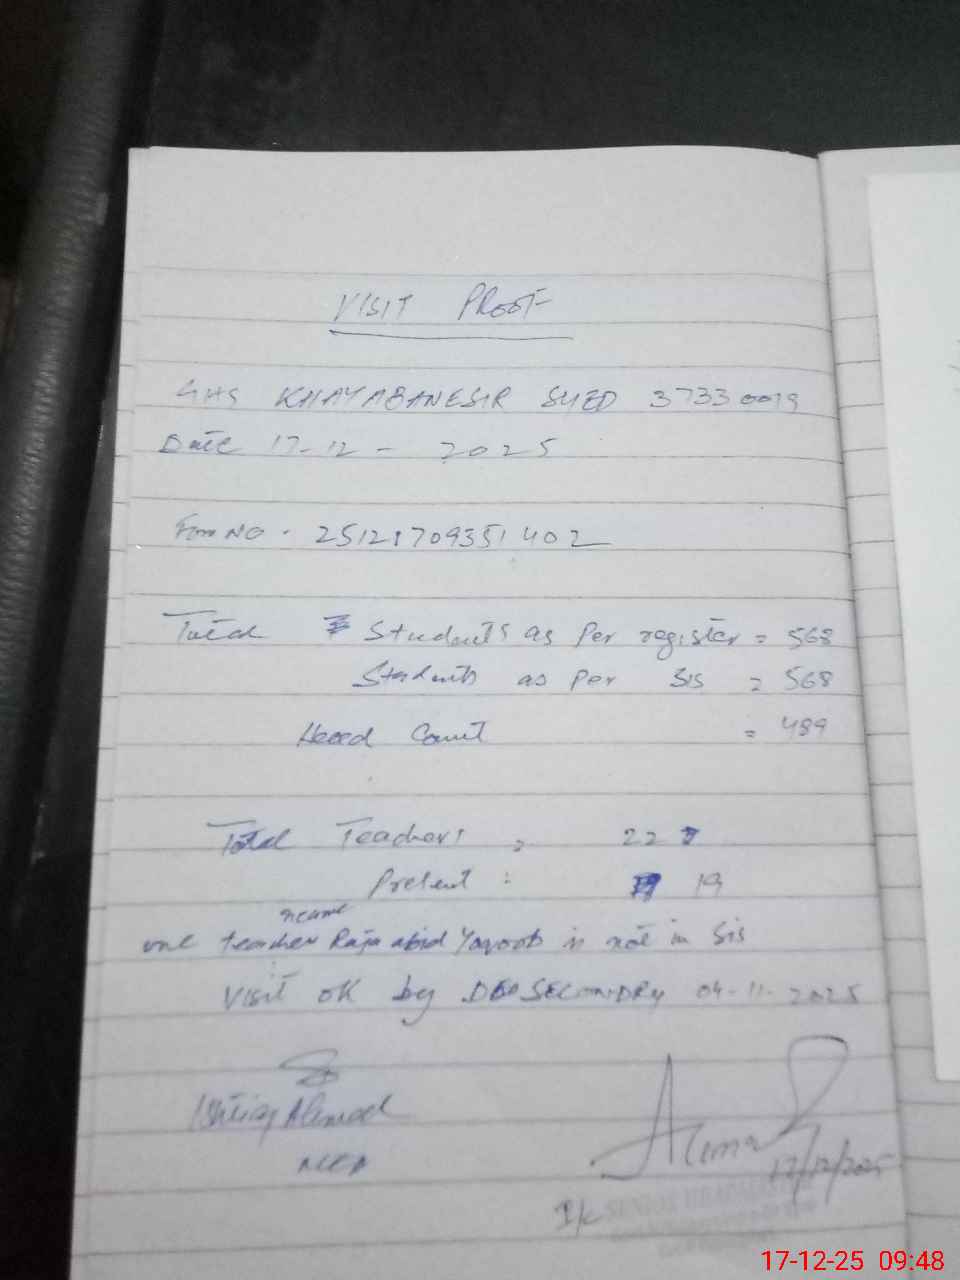 VISIT PROOF
GHS KHAYABANESIR SYED 37330019
Date 17-12-2025
Form NO. 25121709351402
Total Students as Per register = 568
Students as per SIS = 568
Head Count = 489
Total Teachers = 22
Present : 19
name
one teacher Raja abid Yaqoob is not in Sis
Visit OK by DEO SECONDRY 04-11-2025
Ishtiaq Ahmad
Ahmad
17/12/2025
I/c SENIOR HEADMASTER
17-12-25 09:48